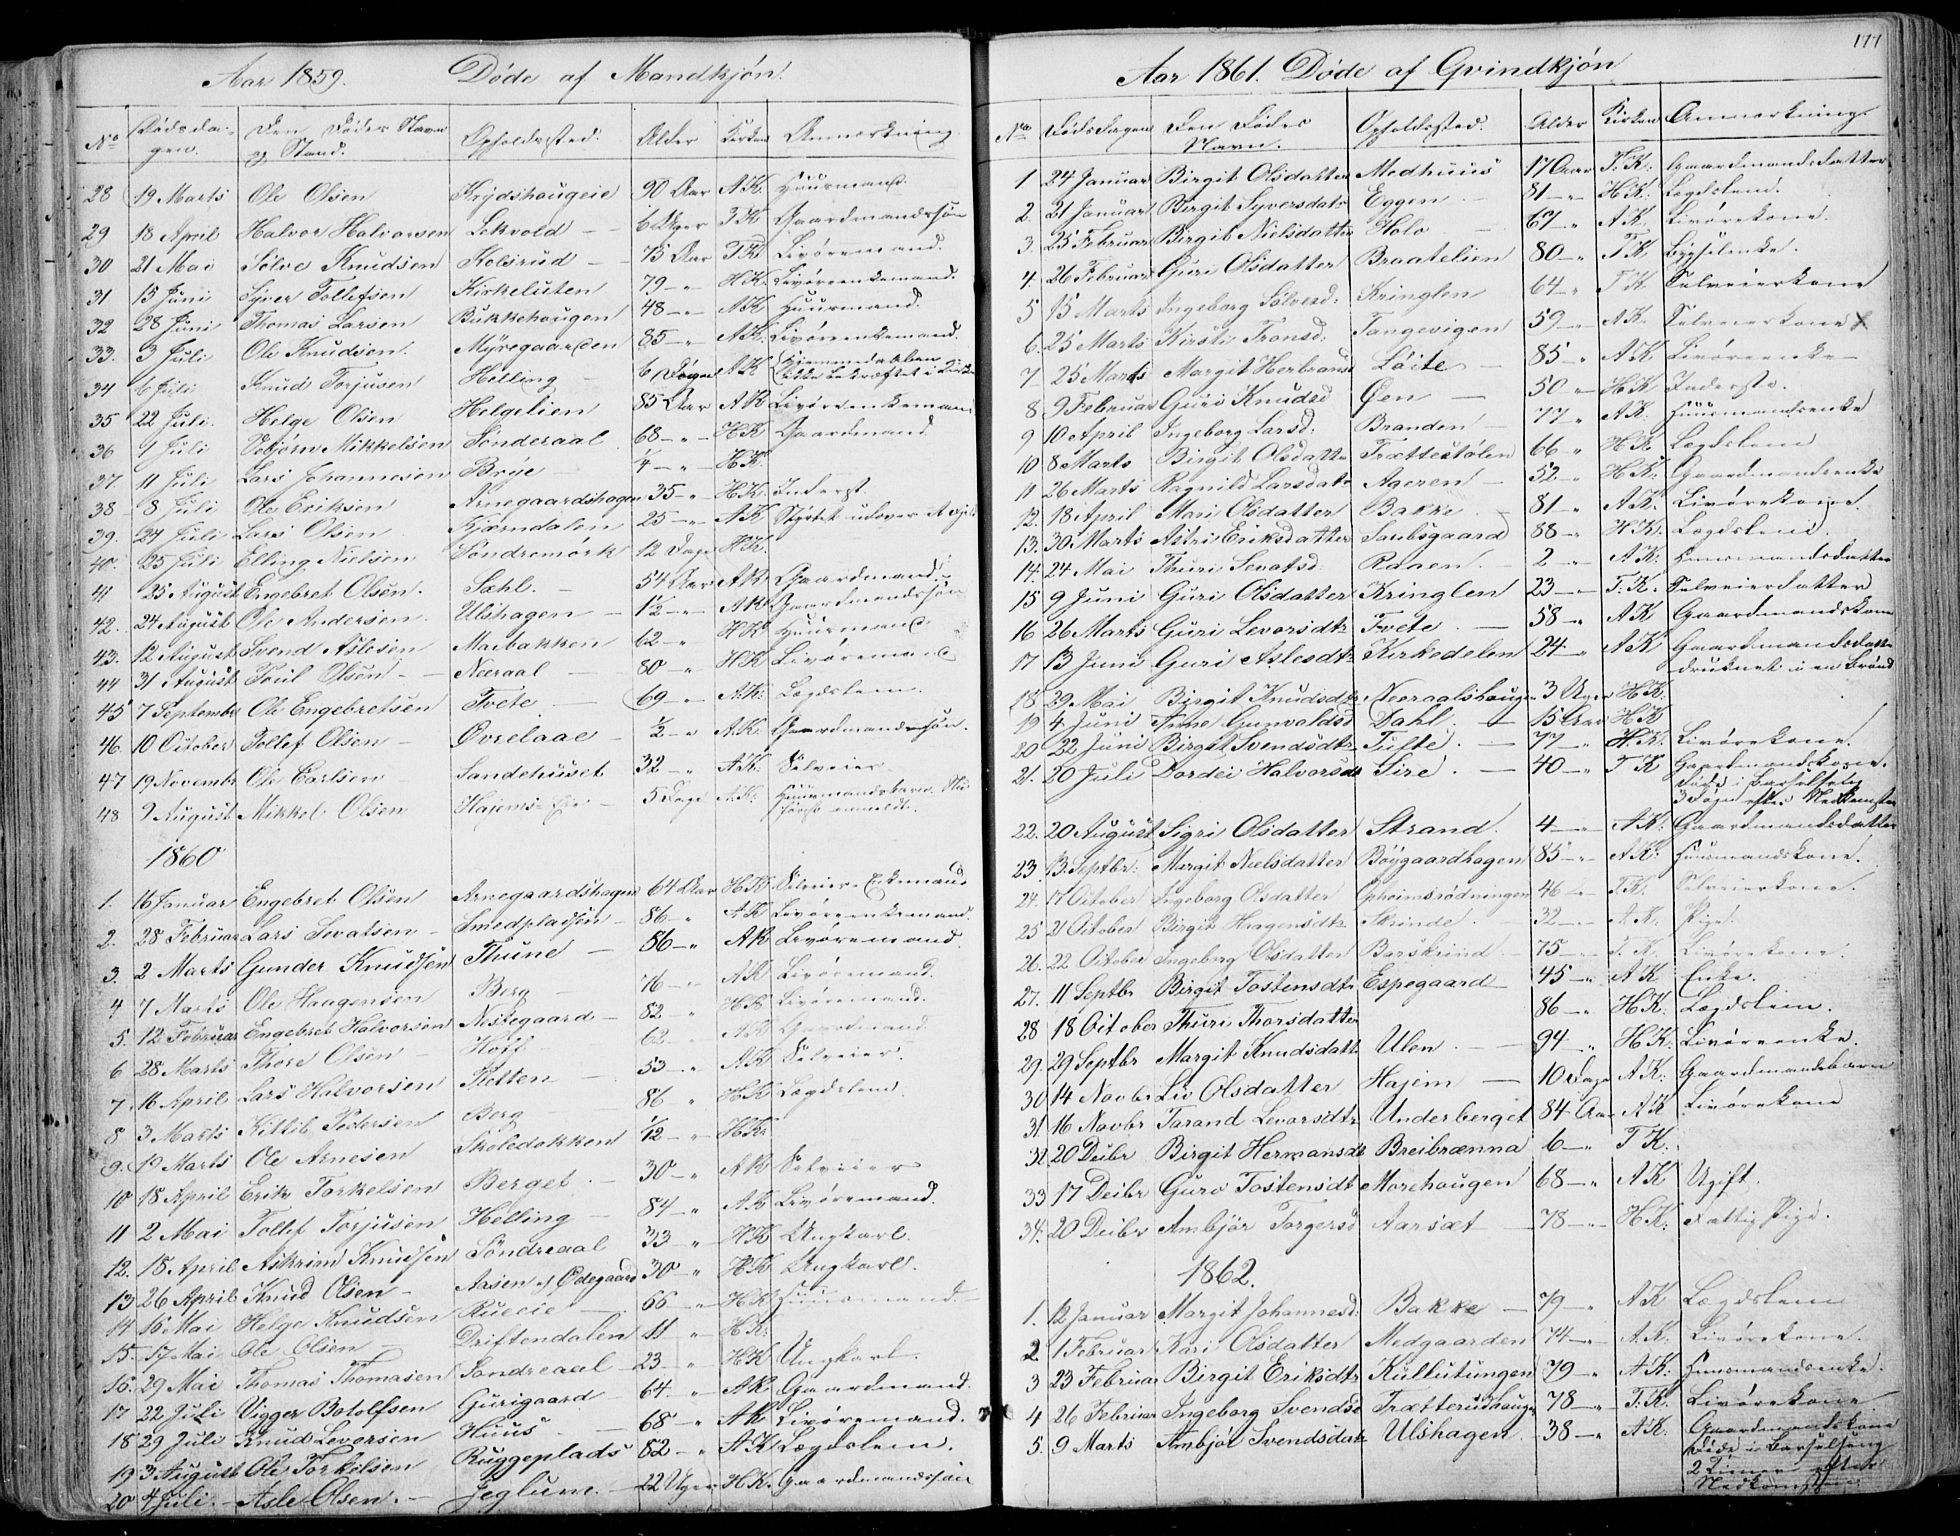 177
Aar 1859. Døde af Mandkjøn.
No Dødsdagen. Den Dødes Navn og Stand. Opholdssted. Alder Kirken Anmærkning
28 19 Marts Ole Olsen 90 Aar A K. Huusmand.
29 18 April Halvor Halvorsen Lekvold 6 Uger T K Gaardmandssøn
30 21 Mai Sølve Knudsen Kolsrud 75 Aar T K Livøremand.
31 15 Juni Syver Tollefsen Kirkeluten 79 " H K. Livøreenkemand.
32 28 Juni Thomas Larsen Bukkehaugen 48 " A K Huusmand.
33. 3 Juli Ole Knudsen. Myregaarden 85 " A K. Livøreenkemand.
34 6 Juli Knud Torjusen Helling 6 Døgn A K Hjemmedøbten
35 22 Juli. Helge Olsen Helgelien 85 Aar A K Livøreenkeman
36 9 Juli Vebjørn Mikkelsen Sønderaal 68 " H K Gaardmand.
37 11 Juli Lars Johannesen Brøje 1/4 " H K.
38 8 Juli Ole Eriksen Arnegaardshagen 35 " H K. Inderst.
39. 24 Juli Lars Olsen Kjørndalen 25 " A K Styrtet udover et
40 25 Juli Elling Nielsen Søndremørk 12 Dage H K.
41 25 August Engebret Olsen. Sahl. 54 Aar A K. Gaardmand.
42. 24 August Ole Andersen Ulshagen 1 1/2 " A K Gaardmandssøn
43. 12 August Svend Aslesen Maibakken 62 " H K Huusmand.
44 31 August Poul Olsen Neeraal 80 " H K Livøremand
45 7 September Ole Engebretsen Tvete 69 " A K: Lægdslem.
46. 10 October Tollef Olsen Øvrelaae 1/2 " A K. Gaardmandssøn.
47 19 Novembr Ole Carlsen Sandehuset 32 " A K: Selveier
48 9 August Mikkel Olsen 5 Dage A K. Huusmandsbarn.
1860
1. 16 Januar Engebret Olsen Arnegaardshagen 64 Aar H K Selveier Enkemand
2. 28 Februar Lars Sevatsen Smedpladsen 86 " A K Livøreenkemand.
3. 2 Marts Gunder Knudsen Thune 86 " A K Livøremand.
4 7 Marts Ole Haagensen Berg 76 " A K Livøremand.
5. 12 Februar Engebret Halvorsen Nestegaard 82 " H K Livøremand.
6 28 Marts Thore Olsen Hoff 62 " A K Gaardmand
7. 16 April Lars Halvorsen Kletten 53 " A K Selveier.
8 3 Marts Kittil Pedersen Berg 86 " H K Lægdslem.
9. 19 Marts Ole Arnesen Skoledokken 1/12 " H K:
10 18 April Erik Torkelsen Berget. 30 " A K Selveier
11 2 Mai Tollef Torjusen Helling 84 " A K Livøremand.
12. 18 April Askrim Knudsen Søndreaal 33 " H K Ungkarl.
13 26 April Knud Olsen Aasen af Ødegaard 30 " H K Ungkarl.
14 16 Mai Helge Knudsen 66 " H K Huusmand
15. 17 Mai Ole Olsen Driftendalen 11 " H K.
16. 29 Mai Thomas Thomasen Søndreaal 23 " H K Ungkarl.
17 22 Juli Vigger Botolfsen Gurigaard 64 " A K Gaardmand.
18 29 Juli Knud Levorsen Huus 68 " A K Livøremand.
19 3 August Ole Torkelsen Ruggeplads 82 " A K Lægdslem.
20 4 Juli. Asle Olsen. Jeglum. 22 Uger H K. Gaardmandssøn
Aar 1861. Døde af Qvindkjøn
No. Dødsdagen Den Dødes Navn. Opholdssted. Alder Kirken Anmærkning
1 24 Januar Birgit Olsdatter Medhuus 17 Aar T. K: Gaardmandsdatter
2. 21 Januar Birgit Syversdatr Eggen 81 " H K. Lægdslem.
3. 25 Februar Birgit Nielsdatter Holo 67 " A K. Livørekone.
4. 26 Februar Guri Olsdatter Braatelien 80 " T K Bygselenke.
5 15 Marts Ingeborg Sølvesd: Kringlen 64 " T K Selveierkone
6. 25 Marts Kirsti Tronsd: Tangevigen 59 " A K. Selveierkone
7 25 Marts Margit Herbransd Løite 85 " A K Livøreenke
8 9 Februar Guri Knudsd Øen 50 " H K Inderste.
9 10 April Ingeborg Larsd: Branden 77 " A K: Huusmandsenke
10 8 Marts Birgit Olsdattr Trættestølen 66 " H K Lægdslem
11 26 Marts Ragnild Larsdatr Ageren 52 " H K: Gaardmandsenke
12. 18 April Mari Olsdatter Bakke 81 " A K Livørekone.
13. 30 Marts Astri Eriksdatter 88 " H K: Lægdslem.
14. 24 Mai Thuri Sevatsd: Raaen. 2 " A K: Huusmandsdatter
15 9 Juni Guri Olsdatter Kringlen 23 T. K: Selveierdatter
16 26 Marts Guri Levorsdtr Tvete 58 " A K Gaardmandskone
17 13 Juni Guri Aslesdtr Kirkedelen 24 " A K Gaardmandsdatter
druknet i en Brønd
18. 29 Mai Birgit Knudsdtr Neeraalshaugen 3 Uger H K:
19 4 Juni Anne Gunvaldsd Dahl. 15 Aar H K
20 22 Juni Birgit Svendsdtr Tufte. 77 " H K. Livørekone.
21. 20 Juli Dordei Halvorsdr Sire. 40 " T K Gaardmandskone.
Døde i Barselseng
3 Døgn efter Nedkomsten
22. 20 August Sigri Olsdatter Strand. 4 A K: Gaardmandsdatter
23 13 Septbr: Margit Nielsdatter Bøygaardhagen 85 " A K. Huusmandskone.
24. 17 October Ingeborg Olsdatter Opheimsrødningen 46 T K. Selveierkone.
25 21 October Birgit Haagensdtr Skrinde. 32 A K. Pige.
26. 22 October Ingeborg Olsdatter 75 T. K. Livørekone.
27. 11 Septbr Birgit Tostensdtr Espegaard 45 " A K Enke.
28 18 October Thuri Thorsdatter 86 " H K: Lægdslem.
29. 29 Septbr Margit Knudsdattr Ulen. 94 " H K: Livøreenke.
30 14 Novbr Liv Olsdatter Hajem 10 Dage A K: Gaardmandsbarn
31. 16 Novbr Tarand Levorsdtr Underberget 84 Aar A K Livørekone
32 20 Decbr Birgit Hermansdr Breibrænna 6 " T K.
33 17 Decbr Guro Tostensdt Morehaugen 68 " A K Ugift.
34. 20 Decbr Ambjør Torgersd Aarsæt 78 " H K. Fattig Pige.
1862.
1. 12 Januar Margit Johannesd: Bakke 79 " A K Lægdslem
2 1 Februar Kari Olsdatter Medgaarden 74 " A. K. Livørekone.
3 23 Februar Birgit Eriksdtr Kullutungen 79 " A K. Huusmandsenke.
4 26 Februar Ingeborg Svendsd Trætterudhaugen 78 " T. K. Livørekone.
5. 9 Marts Ambjør Svendsdatr Ulshagen. 38 " A K. Gaardmandskone
Døde i Barselseng
2 Timer efter
Nedkomsten.